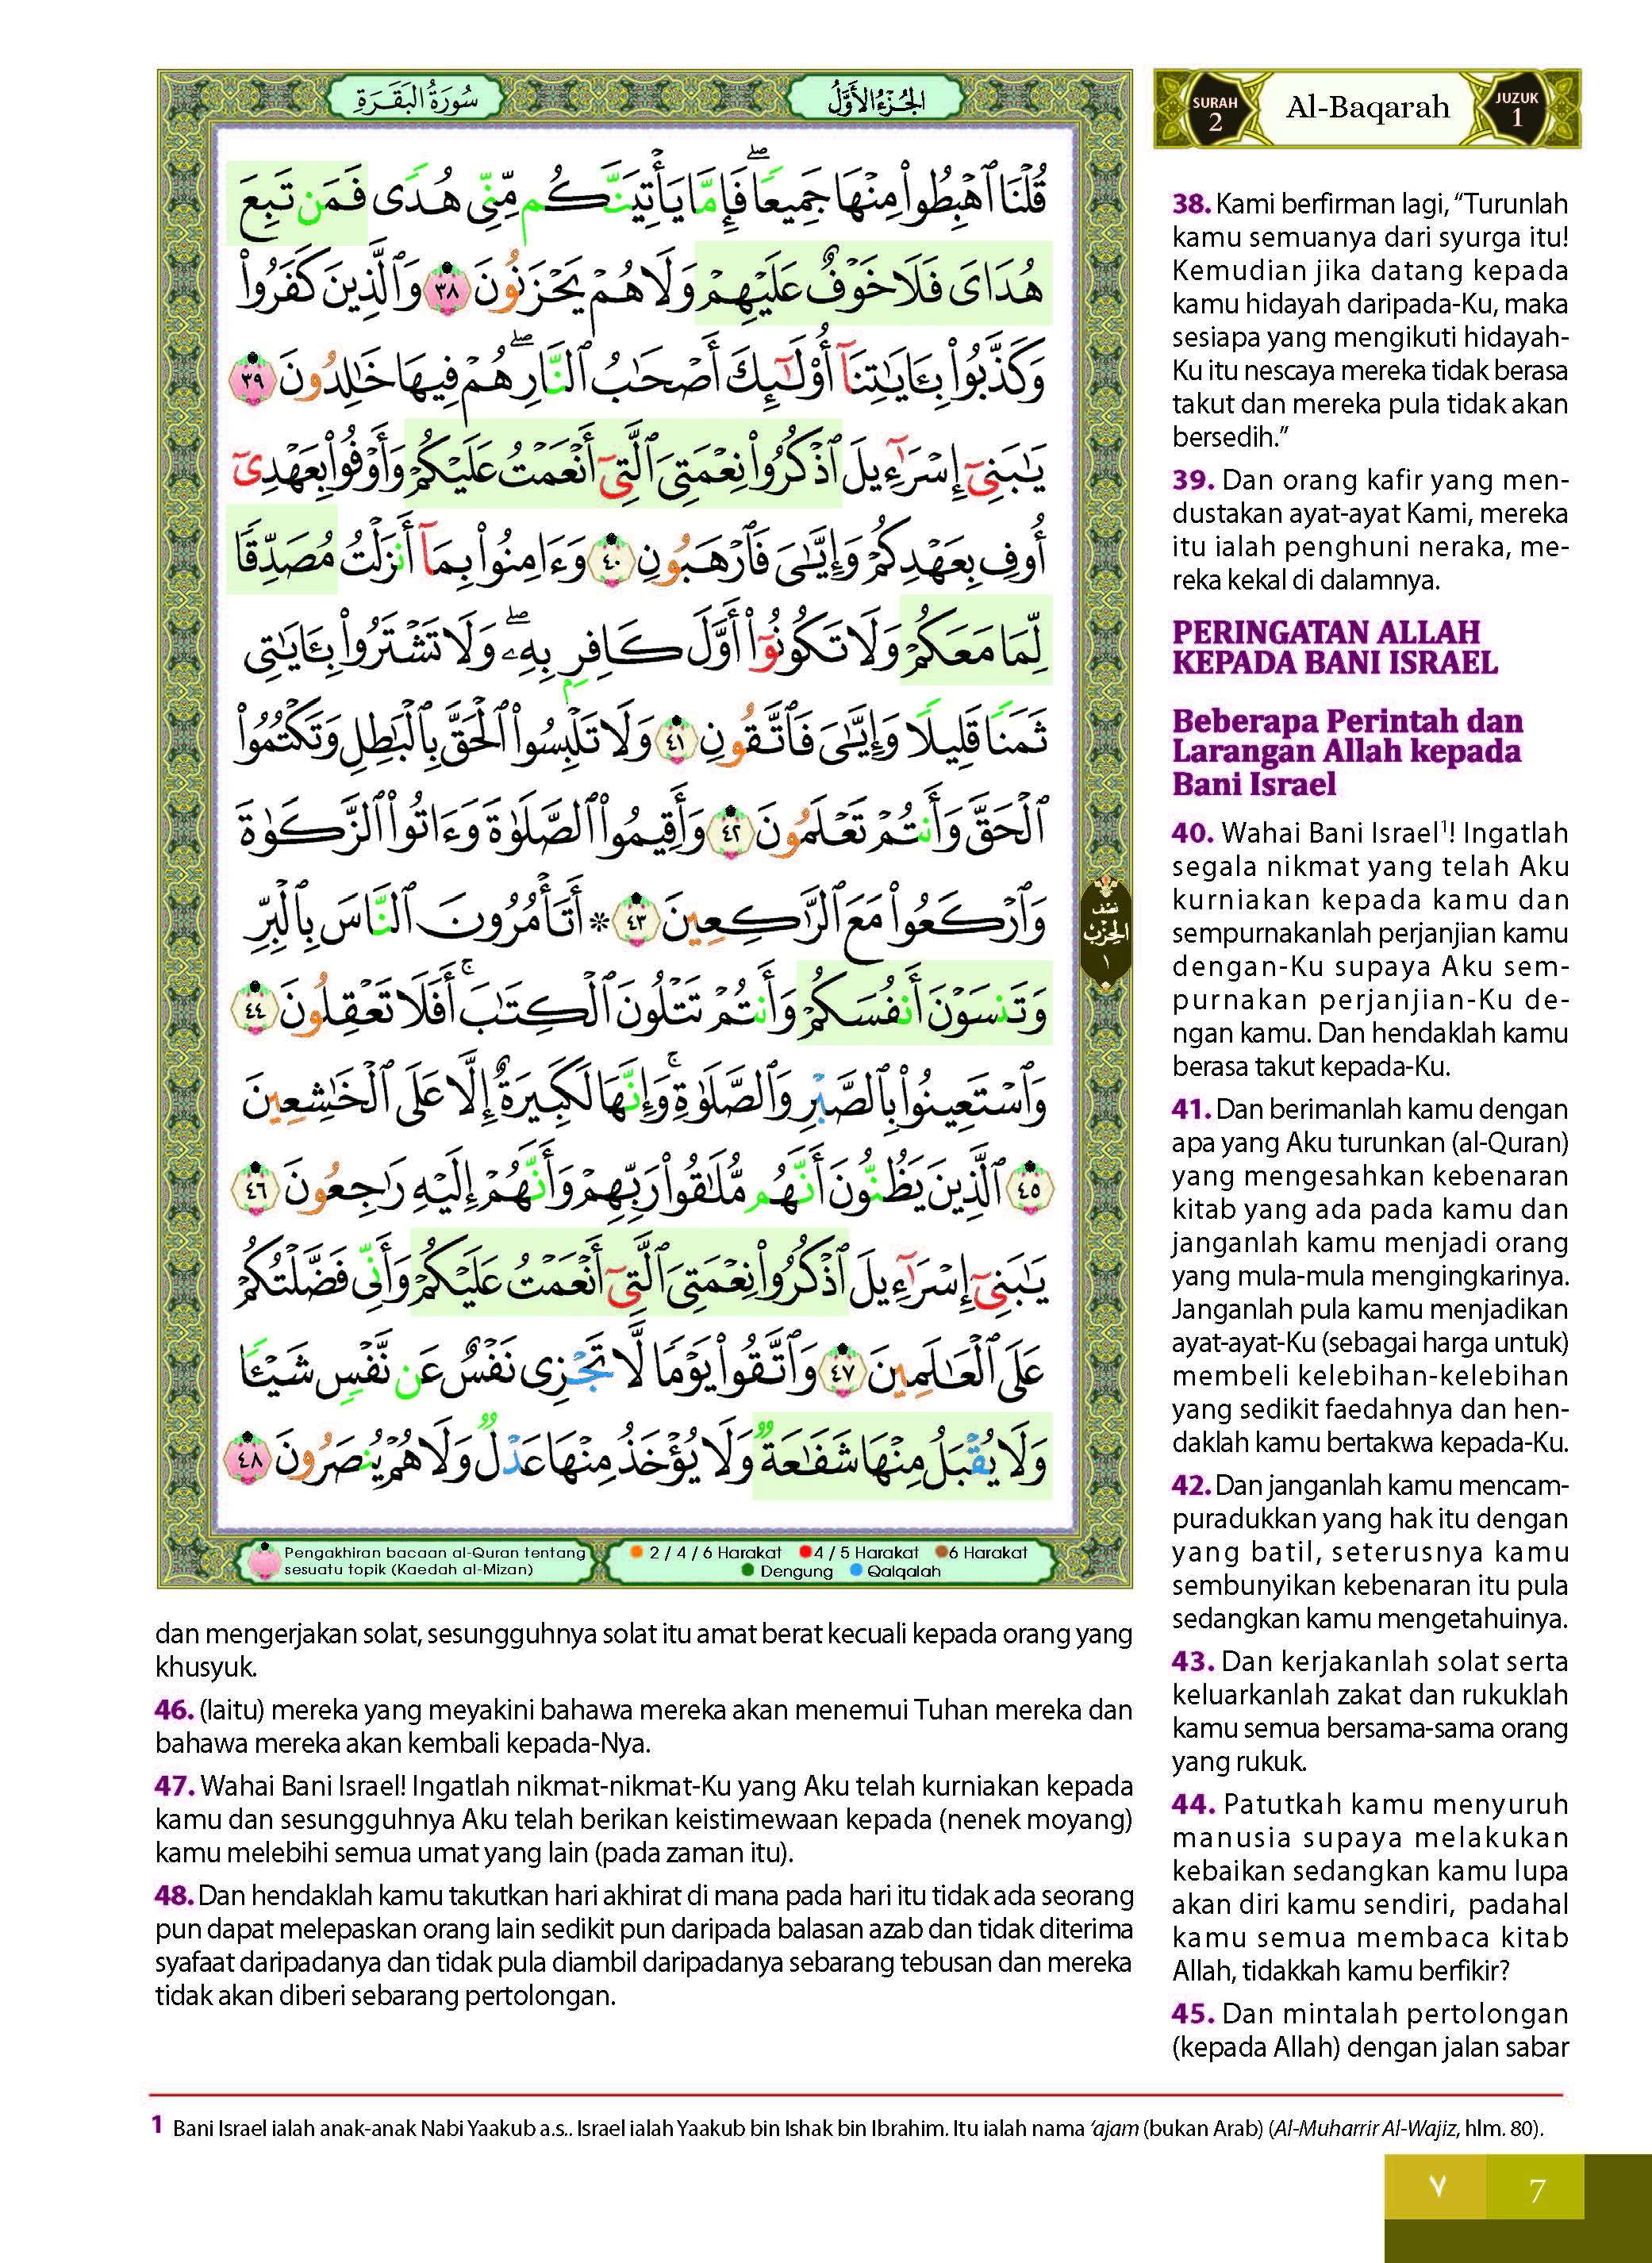 سُورَةُ البَقَرَةِ
الجُزْءُ الأَوَّلُ
قُلْنَا ٱهْبِطُوا۟ مِنْهَا جَمِيعًا ۖ فَإِمَّا يَأْتِيَنَّكُم مِّنِّى هُدًى فَمَن تَبِعَ
هُدَاىَ فَلَا خَوْفٌ عَلَيْهِمْ وَلَا هُمْ يَحْزَنُونَ ٣٨ وَٱلَّذِينَ كَفَرُوا۟
وَكَذَّبُوا۟ بِـَٔايَـٰتِنَآ أُو۟لَـٰٓئِكَ أَصْحَـٰبُ ٱلنَّارِ ۖ هُمْ فِيهَا خَـٰلِدُونَ ٣٩
يَـٰبَنِىٓ إِسْرَٰٓءِيلَ ٱذْكُرُوا۟ نِعْمَتِىَ ٱلَّتِىٓ أَنْعَمْتُ عَلَيْكُمْ وَأَوْفُوا۟ بِعَهْدِىٓ
أُوفِ بِعَهْدِكُمْ وَإِيَّـٰىَ فَٱرْهَبُونِ ٤٠ وَءَامِنُوا۟ بِمَآ أَنزَلْتُ مُصَدِّقًا
لِّمَا مَعَكُمْ وَلَا تَكُونُوٓا۟ أَوَّلَ كَافِرٍۭ بِهِۦ ۖ وَلَا تَشْتَرُوا۟ بِـَٔايَـٰتِى
ثَمَنًا قَلِيلًا وَإِيَّـٰىَ فَٱتَّقُونِ ٤١ وَلَا تَلْبِسُوا۟ ٱلْحَقَّ بِٱلْبَـٰطِلِ وَتَكْتُمُوا۟
ٱلْحَقَّ وَأَنتُمْ تَعْلَمُونَ ٤٢ وَأَقِيمُوا۟ ٱلصَّلَوٰةَ وَءَاتُوا۟ ٱلزَّكَوٰةَ
وَٱرْكَعُوا۟ مَعَ ٱلرَّٰكِعِينَ ٤٣ * أَتَأْمُرُونَ ٱلنَّاسَ بِٱلْبِرِّ
وَتَنسَوْنَ أَنفُسَكُمْ وَأَنتُمْ تَتْلُونَ ٱلْكِتَـٰبَ ۚ أَفَلَا تَعْقِلُونَ ٤٤
وَٱسْتَعِينُوا۟ بِٱلصَّبْرِ وَٱلصَّلَوٰةِ ۚ وَإِنَّهَا لَكَبِيرَةٌ إِلَّا عَلَى ٱلْخَـٰشِعِينَ
٤٥ ٱلَّذِينَ يَظُنُّونَ أَنَّهُم مُّلَـٰقُوا۟ رَبِّهِمْ وَأَنَّهُمْ إِلَيْهِ رَٰجِعُونَ ٤٦
يَـٰبَنِىٓ إِسْرَٰٓءِيلَ ٱذْكُرُوا۟ نِعْمَتِىَ ٱلَّتِىٓ أَنْعَمْتُ عَلَيْكُمْ وَأَنِّى فَضَّلْتُكُمْ
عَلَى ٱلْعَـٰلَمِينَ ٤٧ وَٱتَّقُوا۟ يَوْمًا لَّا تَجْزِى نَفْسٌ عَن نَّفْسٍ شَيْـًٔا
وَلَا يُقْبَلُ مِنْهَا شَفَـٰعَةٌ وَلَا يُؤْخَذُ مِنْهَا عَدْلٌ وَلَا هُمْ يُنصَرُونَ ٤٨
نصف
الحزب
١
Pengakhiran bacaan al-Quran tentang
sesuatu topik (Kaedah al-Mizan)
2 / 4 / 6 Harakat 4 / 5 Harakat 6 Harakat
Dengung Qalqalah
SURAH
2
Al-Baqarah
JUZUK
1
38. Kami berfirman lagi, “Turunlah
kamu semuanya dari syurga itu!
Kemudian jika datang kepada
kamu hidayah daripada-Ku, maka
sesiapa yang mengikuti hidayah-
Ku itu nescaya mereka tidak berasa
takut dan mereka pula tidak akan
bersedih.”
39. Dan orang kafir yang men-
dustakan ayat-ayat Kami, mereka
itu ialah penghuni neraka, me-
reka kekal di dalamnya.
PERINGATAN ALLAH
KEPADA BANI ISRAEL
Beberapa Perintah dan
Larangan Allah kepada
Bani Israel
40. Wahai Bani Israel¹! Ingatlah
segala nikmat yang telah Aku
kurniakan kepada kamu dan
sempurnakanlah perjanjian kamu
dengan-Ku supaya Aku sem-
purnakan perjanjian-Ku de-
ngan kamu. Dan hendaklah kamu
berasa takut kepada-Ku.
41. Dan berimanlah kamu dengan
apa yang Aku turunkan (al-Quran)
yang mengesahkan kebenaran
kitab yang ada pada kamu dan
janganlah kamu menjadi orang
yang mula-mula mengingkarinya.
Janganlah pula kamu menjadikan
ayat-ayat-Ku (sebagai harga untuk)
membeli kelebihan-kelebihan
yang sedikit faedahnya dan hen-
daklah kamu bertakwa kepada-Ku.
42. Dan janganlah kamu mencam-
puradukkan yang hak itu dengan
yang batil, seterusnya kamu
sembunyikan kebenaran itu pula
sedangkan kamu mengetahuinya.
43. Dan kerjakanlah solat serta
keluarkanlah zakat dan rukuklah
kamu semua bersama-sama orang
yang rukuk.
44. Patutkah kamu menyuruh
manusia supaya melakukan
kebaikan sedangkan kamu lupa
akan diri kamu sendiri, padahal
kamu semua membaca kitab
Allah, tidakkah kamu berfikir?
45. Dan mintalah pertolongan
(kepada Allah) dengan jalan sabar
dan mengerjakan solat, sesungguhnya solat itu amat berat kecuali kepada orang yang
khusyuk.
46. (Iaitu) mereka yang meyakini bahawa mereka akan menemui Tuhan mereka dan
bahawa mereka akan kembali kepada-Nya.
47. Wahai Bani Israel! Ingatlah nikmat-nikmat-Ku yang Aku telah kurniakan kepada
kamu dan sesungguhnya Aku telah berikan keistimewaan kepada (nenek moyang)
kamu melebihi semua umat yang lain (pada zaman itu).
48. Dan hendaklah kamu takutkan hari akhirat di mana pada hari itu tidak ada seorang
pun dapat melepaskan orang lain sedikit pun daripada balasan azab dan tidak diterima
syafaat daripadanya dan tidak pula diambil daripadanya sebarang tebusan dan mereka
tidak akan diberi sebarang pertolongan.
1 Bani Israel ialah anak-anak Nabi Yaakub a.s.. Israel ialah Yaakub bin Ishak bin Ibrahim. Itu ialah nama ‘ajam (bukan Arab) (Al-Muharrir Al-Wajiz, hlm. 80).
٧ 7